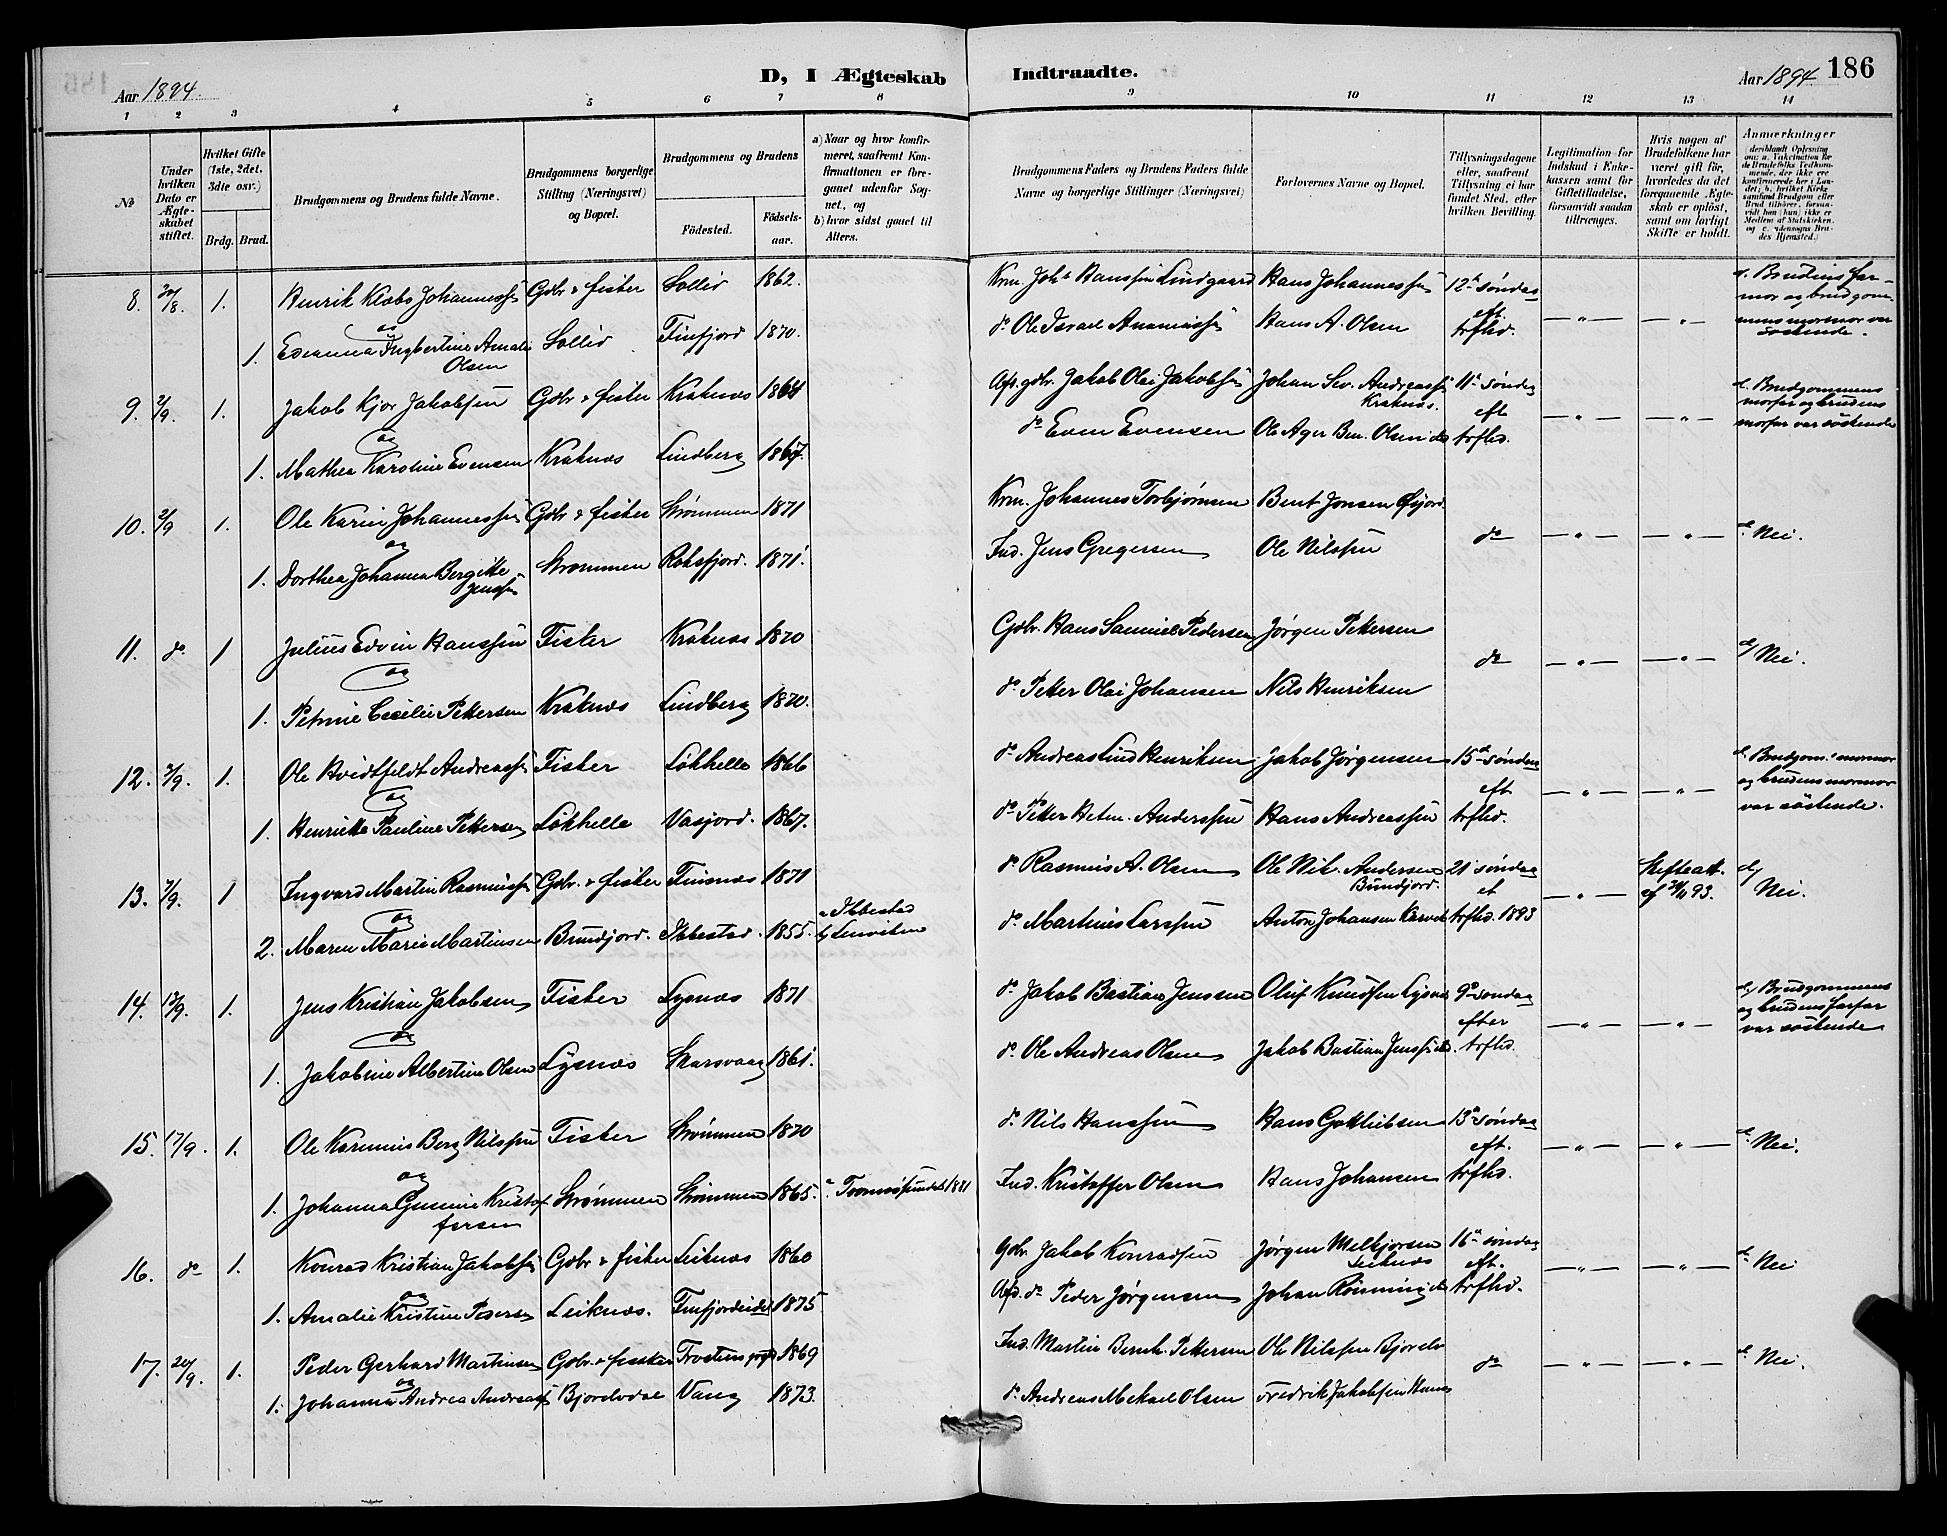 186
D, I Ægteskab Indtraadte.
Aar 1894.
Aar 1894.
1 2 3 4 5 6 7 8 9 10 11 12 13 14
No
Under hvilken Dato er Ægteskabet stiftet.
Hvilket Gifte (1ste, 2det, 3die osv.)
Brdg. Brud.
Brudgommens og Brudens fulde Navne.
Brudgommens borgerlige Stilling (Næringsvei) og Bopæl.
Brudgommens og Brudens
Födested.
Födselsaar.
a) Naar og hvor konfirmeret, saafremt Konfirmationen er foregaaet udenfor Sognet, og
b) hvor sidst gaaet til Alters.
Brudgommens Faders og Brudens Faders fulde Navne og borgerlige Stillinger (Næringsvei)
Forlovernes Navne og Bopæl.
Tillysningsdagene eller, saafremt Tillysning ei har fundet Sted, efter hvilken Bevilling.
Legitimation for Indskud i Enkekassen samt for Giftetilladelse, forsaavidt saadan tiltrænges.
Hvis nogen af Brudefolkene har været gift för, hvorledes da det foregaaende Ægteskab er oplöst, samt om lovligt Skifte er holdt.
Anmærkninger
8. 20/8. 1. Henrik Klæbo Johannessen Gdbr & fisker Sollid 1862. Krm. Johs Hanssen Lindgaard Hans Johannessen 12te søndag eft. trfhd. — " — — " — d. Brudens farmor og brudgommens mormor var søskende.
og
1. Edianna Ingbertine Amalie Olsen Sollid Finfjord 1870. do Ole Israel Hans A. Olsen
9. 2/9. 1. Jakob Kjor Jakobsen Gdbr & fisker Kraknæs 1868 Afs. gdbr. Jakob Olai Jakobsen Johan Sev. Andreassen Kraknæs. 11te søndag eft trfhd. — " — — " — d. Brudgommens morfar og brudens morfar var søskende
og
1. Mathea Karoline Evensen Kraknæs Lindberg 1867. do Even Evensen Ole Ager Ben. Olsen do
10. 2/9 1. Ole Karin Johannessen Gdbr & fisker Strømmen 1871 Krm. Johannes Torbjørnsen Bent Jonsen Øijord do — " — — " — d. Nei.
og
1. Dorthea Johanna Bergitte Jenssen Strømmen Roksfjord. 1871. Ind. Jens Gregersen Ole Nilssen
11. do 1 Julius Edvin Hanssen Fisker Kraknæs 1870 Gdbr. Hans Samuel Pedersen Jørgen Pettersen do — " — — " — d/ Nei.
og
1. Petrine Cecilie Pettersen Kraknæs Lindberg 1870. do Petter Olai Johansen Nils Henriksen
12. 7/9. 1. Ole Hvidtfeldt Andreassen Fisker Løkhelle 1866 do Andreas Lind Henriksen Jakob Jørgensen 15de søndag eft trfhd. — " — — " — d. Brudgom.s mormor og brudens mormor var søskende.
og
1. Henrikke Pauline Pettersen Løkhelle Vasjord. 1867. do Petter Hetm. Anderssen Hans Andreassen
13. 7/9. 1 Ingvard Martin Rasmussen Gdbr. & fisker Finsnæs 1871 do Rasmus A. Olsen Ole Nik. Andersen Bundjord. 21 søndag et trfhd. 1893 — " — Skifteatt. af 21/11 93. d/ Nei.
og
2. Maren Marie Martinsen Bundjord. Ibbestad. 1855. a Ibbestad b/ Lenviken do Martines Larssen Anton Johansen
14. 13/9. 1. Jens Kristian Jakobsen Fisker Lysnæs 1871 do Jakob Bastian Jenssen Oluf Knudsen Lysnæs 9de søndag efter trfhd. — " — — " — d/ Brudgommens og brudens farfar var søskende
og
1. Jakobine Albertine Olsen Lysnæs Skarsvaag 1861. do Ole Andreas Olsen Jakob Bastian Jenssen do
15. 17/9. 1. Ole Karenius Berg Nilssen Fisker Strømmen 1870 do Nils Hanssen Hans Gottliebsen 13de søndag eft. trfhd. — " — — " — d. Nei.
og
1. Johanna Gusinie Kristoffersen Strømmen Strømmen 1865. a. Tromsøsundet 1881 Ind. Kristoffer Olsen Hans Johansen
16. do 1. Konrad Kristian Jakobsen Gdbr & fisker Leiknæs 1860 Gdbr. Jakob Konradsen Jørgen Melkjorsen Leiknæs 16de søndag eft. trfhd. — " — — " — d. Nei
og
1. Amalie Kristine Pedersen Leiknæs. Finfjordeidet 1875 Afs. do Peder Jørgensen Johan Rönning do
17. 20/9. 1. Peder Gerhard Martinsen Gdbr. & fisker 1869 Ind. Martin Bernh. Pettersen Ole Nilssen Bjorelv do — " — — " — d. Nei.
og
1. Johanna Andrea Andreassen Bjorelvdal Vang 1873. do Andreas Mekael Olsen Fredrik Jakobsen